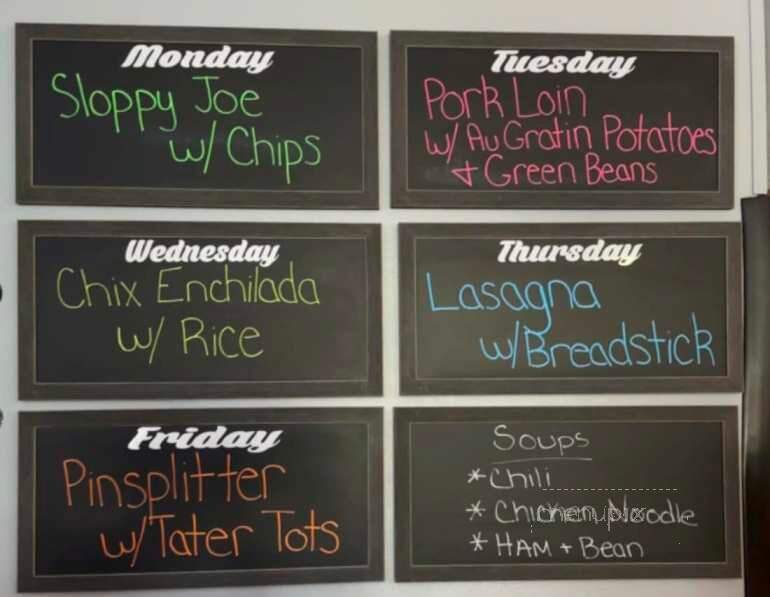 Monday
Sloppy Joe
w/ Chips
Tuesday
Pork Loin
w/ Au Gratin Potatoes
+ Green Beans
Wednesday
Chix Enchilada
w/ Rice
Thursday
Lasagna
w/ Breadstick
Friday
Pinsplitter
w/ Tater Tots
Soups
* Chili
* Chicken Noodle
* HAM + Bean